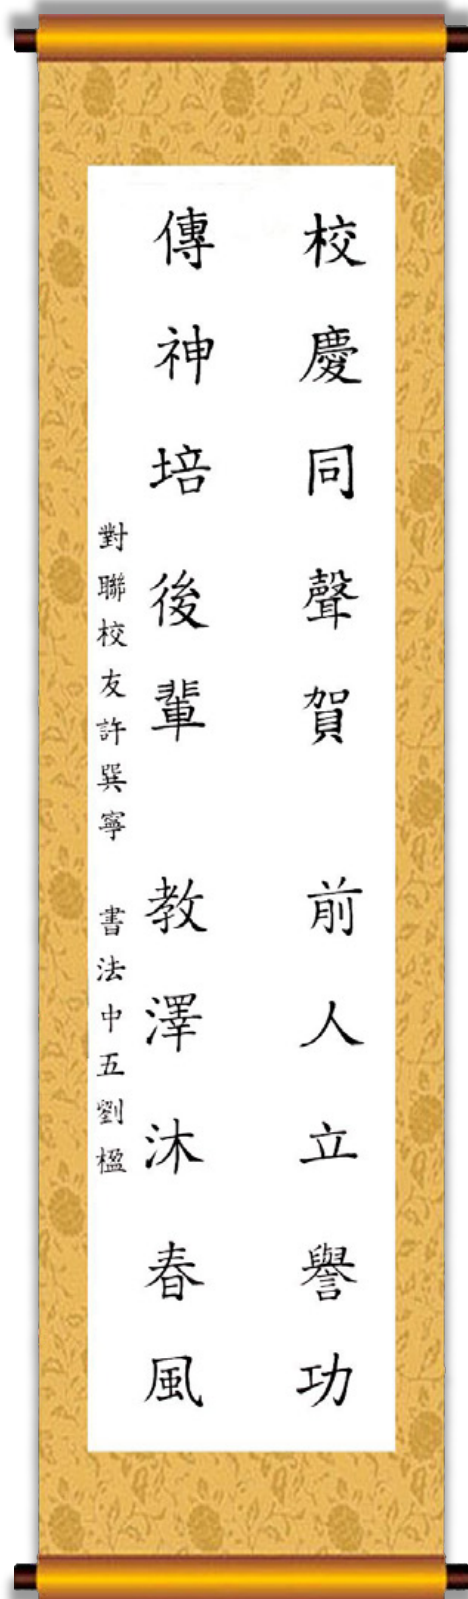 校慶同聲賀 前人立譽功
傳神培後輩 教澤沐春風
對聯校友許巽寧 書法中五劉楹